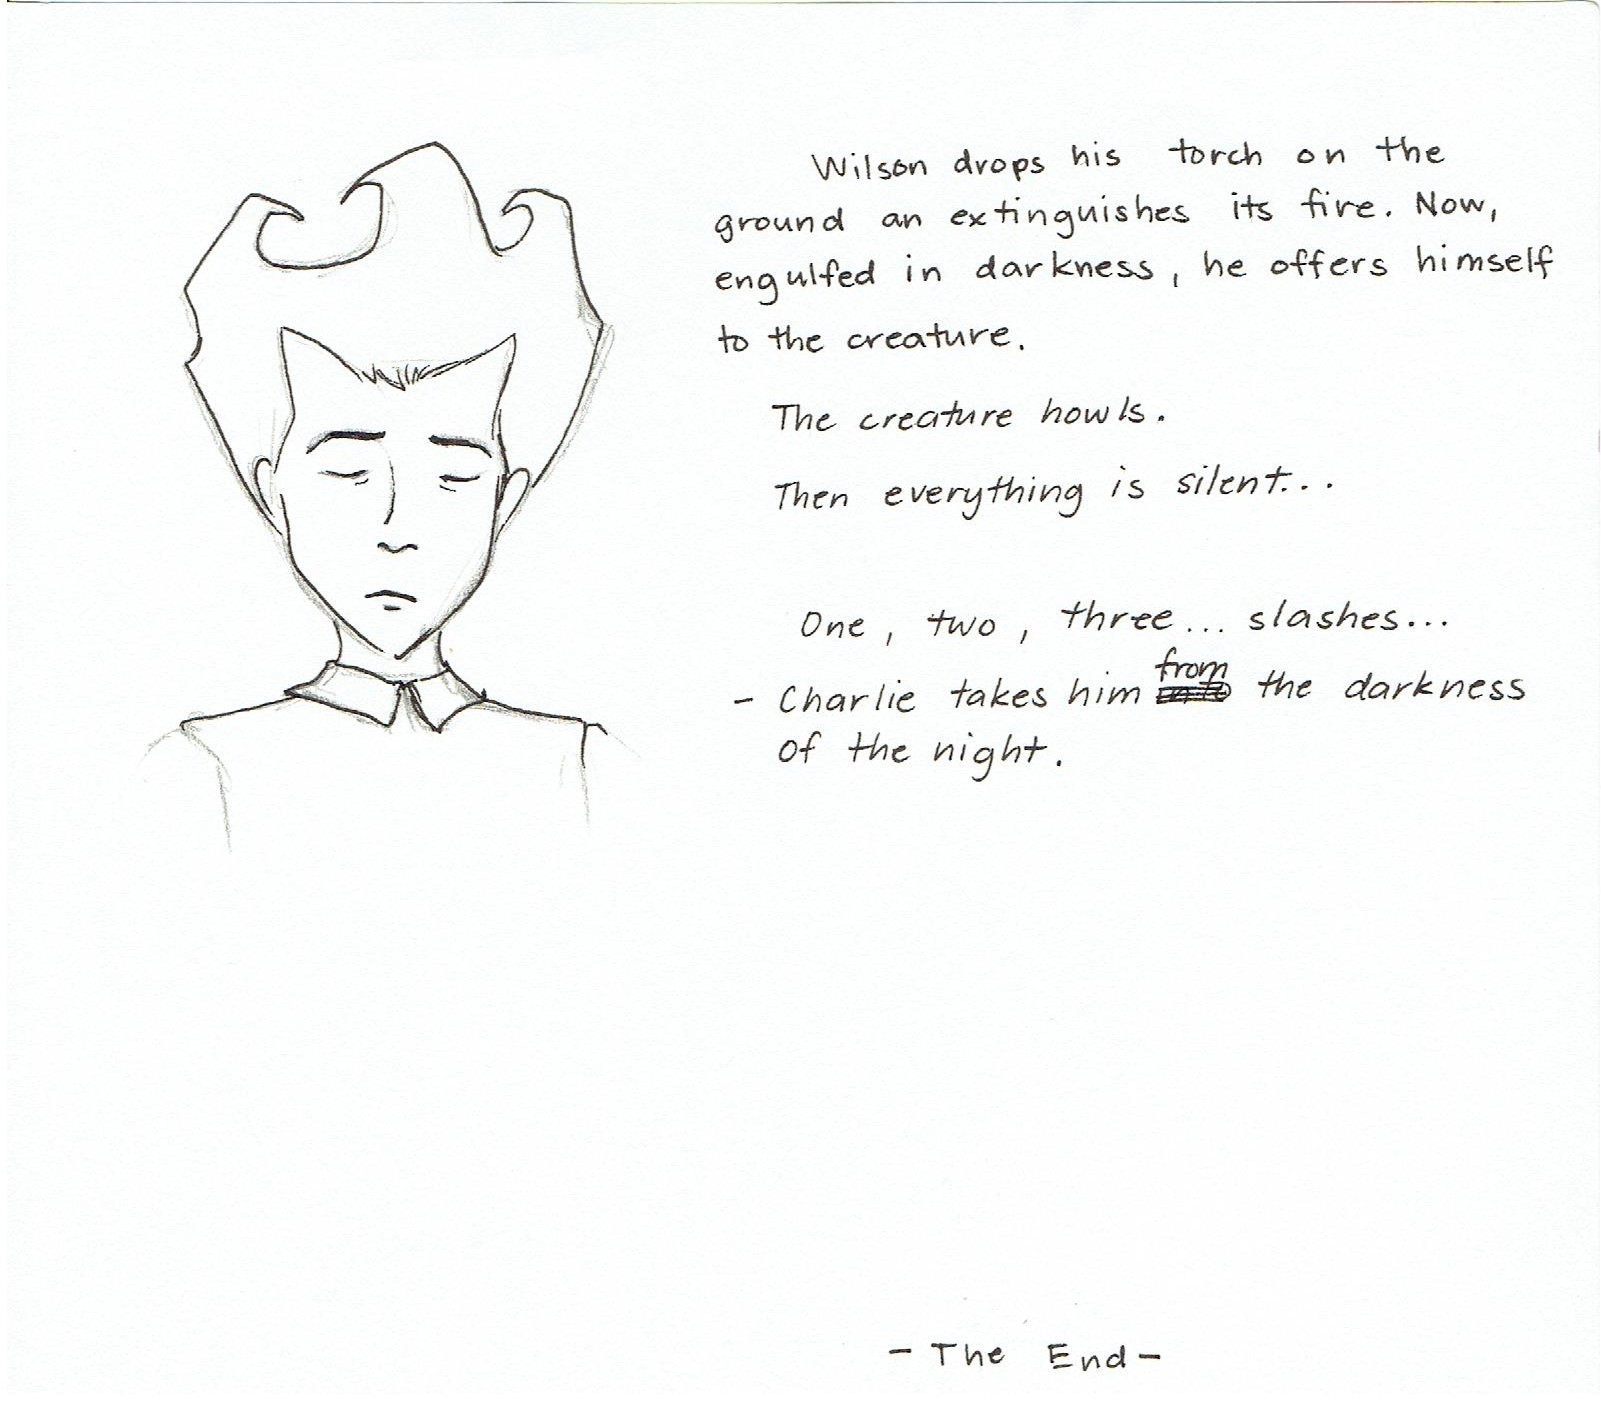 Wilson drops his torch on the
ground an extinguishes its fire. Now,
engulfed in darkness, he offers himself
to the creature.
The creature howls.
Then everything is silent...
One, two, three... slashes...
- Charlie takes him from the darkness
of the night.
- The End -